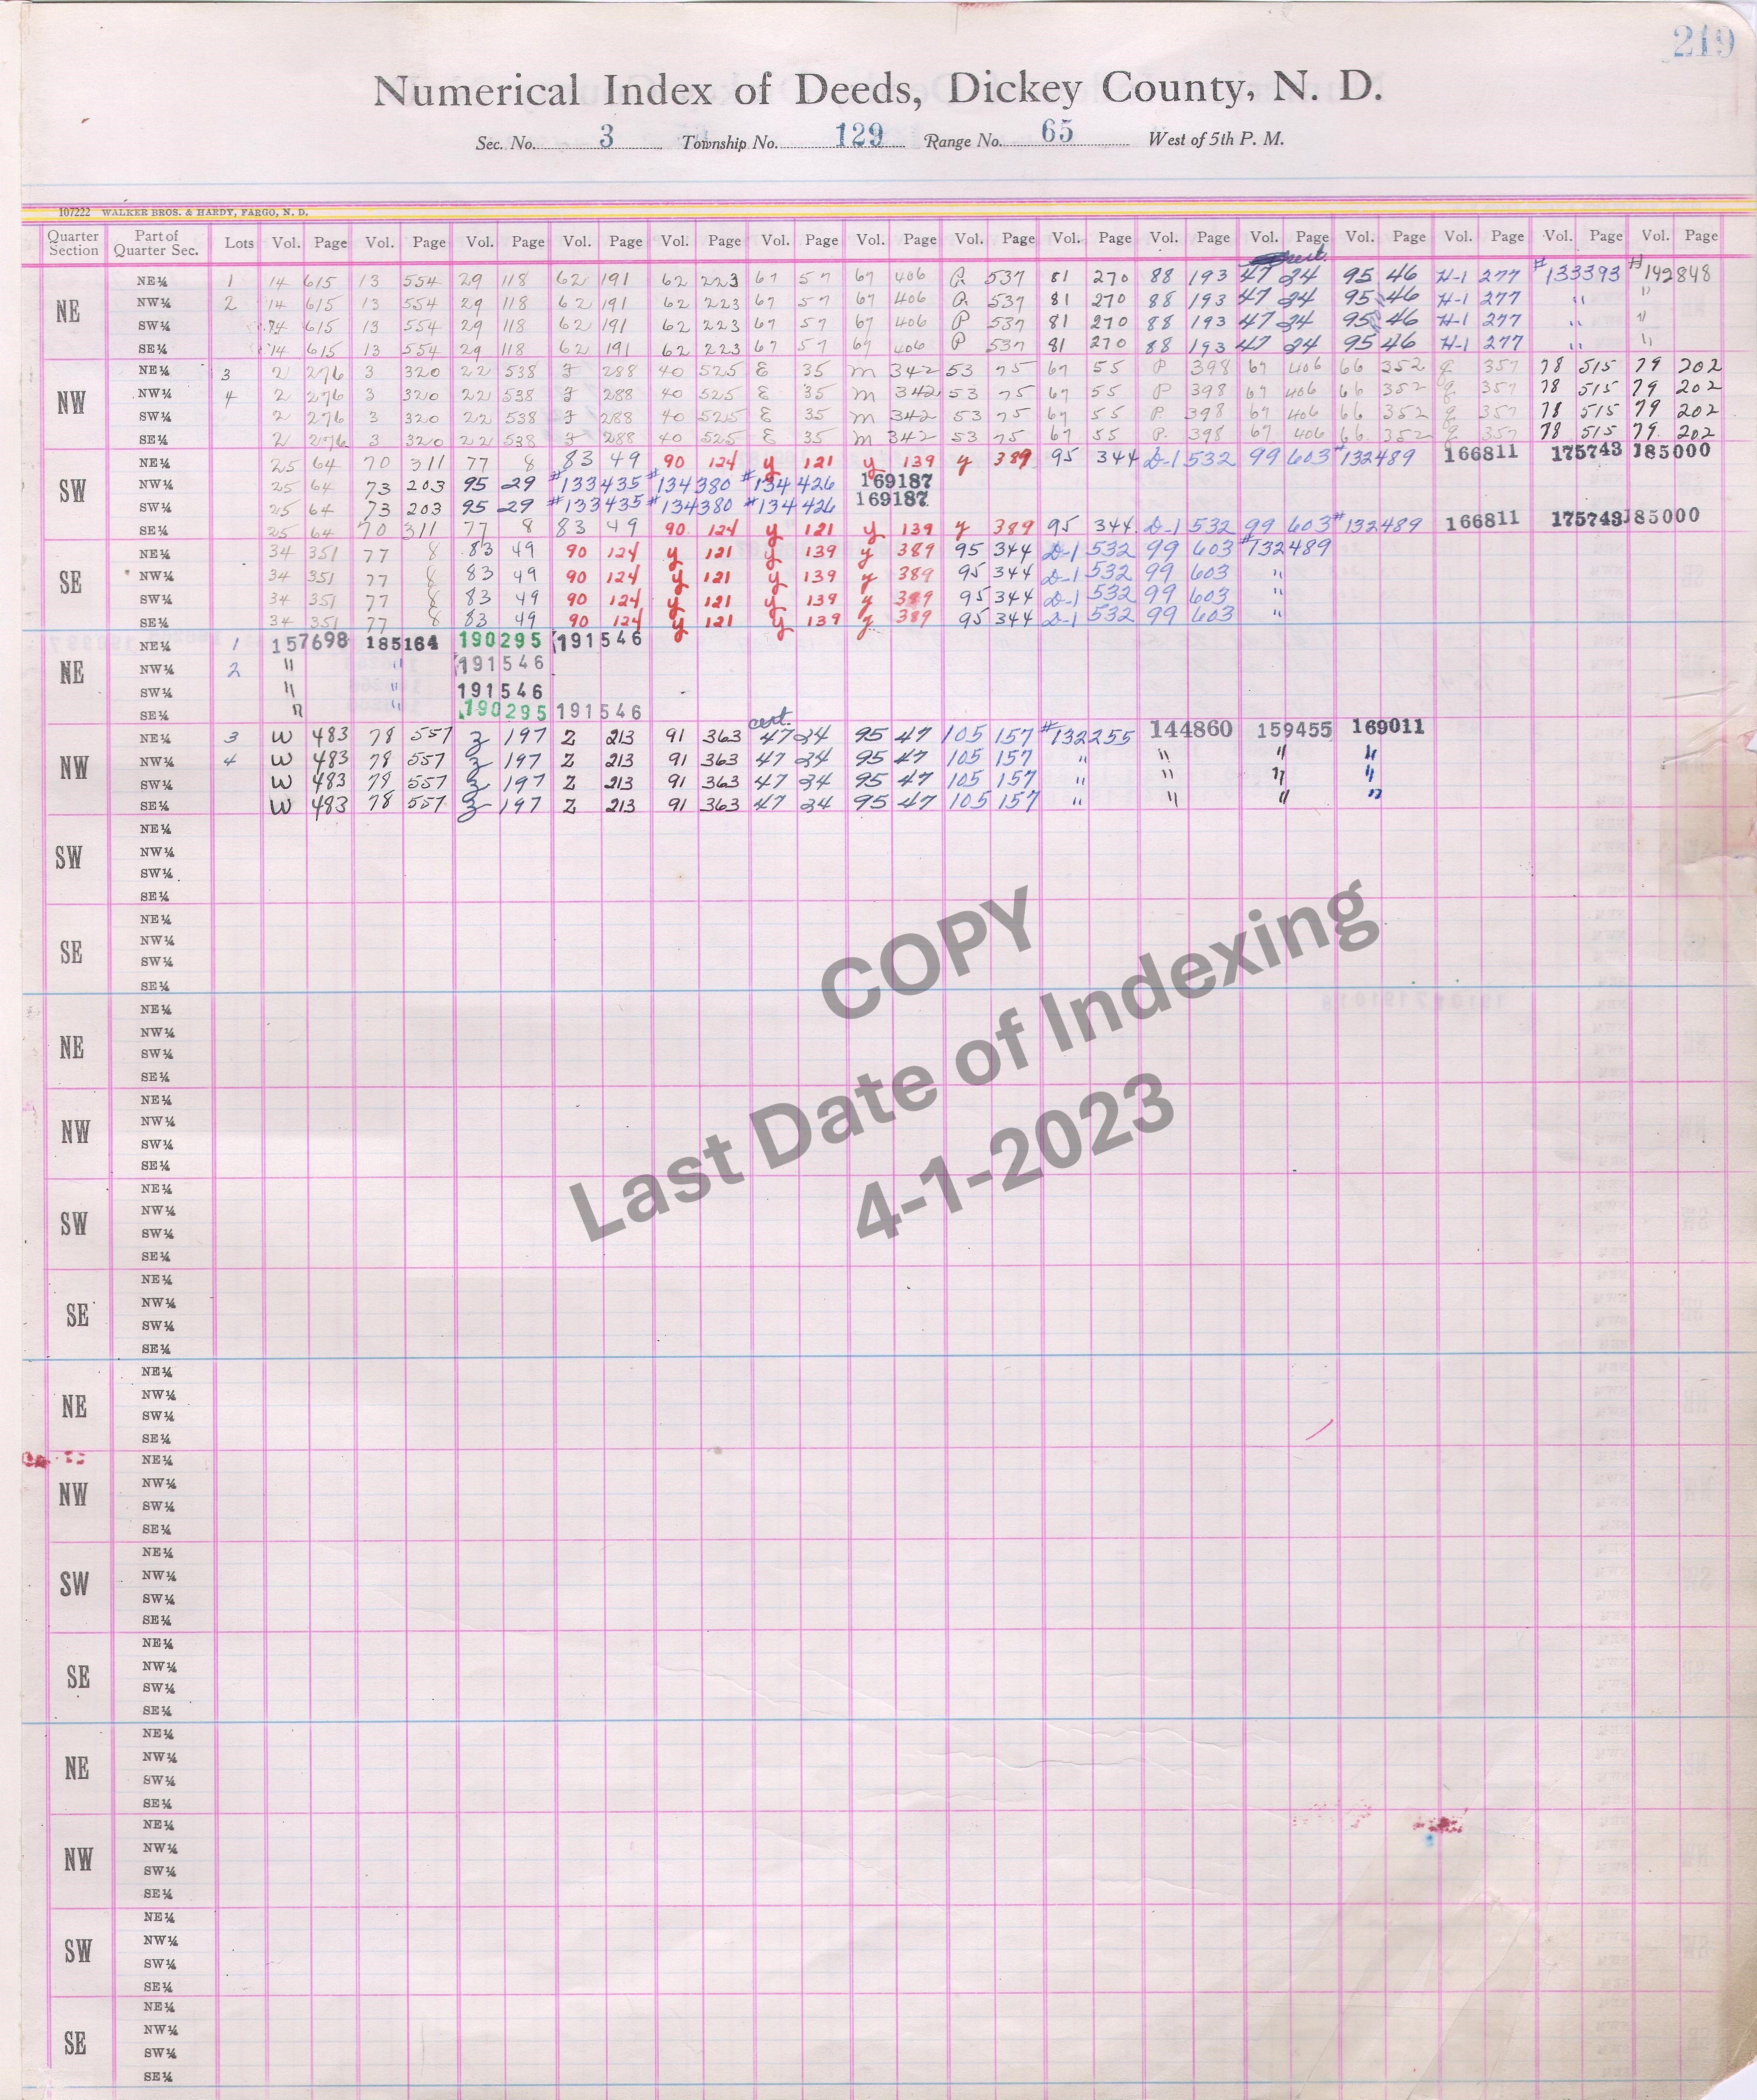 219
Numerical Index of Deeds, Dickey County, N. D.
Sec. No. 3 Township No. 129 Range No. 65 West of 5th P. M.
107222 WALKER BROS. & HARDY, FARGO, N. D.
Quarter Section Part of Quarter Sec. Lots Vol. Page Vol. Page Vol. Page Vol. Page Vol. Page Vol. Page Vol. Page Vol. Page Vol. Page Vol. Page Vol. Page Vol. Page Vol. Page Vol. Page Vol. Page
cert.
NE
NE¼ 1 14 615 13 554 29 118 62 191 62 223 67 57 67 406 537 81 270 88 193 47 34 95 46 H-1 277 #133393 #142848
NW¼ 2 14 615 13 554 29 118 62 191 62 223 67 57 67 406 537 81 270 88 193 47 34 95 46 H-1 277 " "
SW¼ 14 615 13 554 29 118 62 191 62 223 67 57 67 406 P 537 81 270 88 193 47 34 95 46 H-1 277 " "
SE¼ 14 615 13 554 29 118 62 191 62 223 67 57 67 406 P 537 81 270 88 193 47 34 95 46 H-1 277 " "
NW
NE¼ 3 2 276 3 320 22 538 288 40 525 E 35 M 342 53 75 67 55 P 398 67 406 66 352 357 78 515 79 202
NW¼ 4 2 276 3 320 22 538 288 40 525 E 35 M 342 53 75 67 55 P 398 67 406 66 352 357 78 515 79 202
SW¼ 2 276 3 320 22 538 288 40 525 E 35 M 342 53 75 67 55 P 398 67 406 66 352 357 78 515 79 202
SE¼ 2 276 3 320 22 538 288 40 525 E 35 M 342 53 75 67 55 P. 398 67 406 66 352 357 78 515 79 202
SW
NE¼ 25 64 70 311 77 8 83 49 90 124 y 121 y 139 y 389 95 344 D-1 532 99 603 #132489 166811 175743 185000
NW¼ 25 64 73 203 95 29 #133435 #134380 #134426 169187
SW¼ 25 64 73 203 95 29 #133435 #134380 #134426 169187
SE¼ 25 64 70 311 77 8 83 49 90 124 y 121 y 139 y 389 95 344 D-1 532 99 603 #132489 166811 175743 185000
SE
NE¼ 34 351 77 8 83 49 90 124 y 121 y 139 y 389 95 344 D-1 532 99 603 #132489
NW¼ 34 351 77 8 83 49 90 124 y 121 y 139 y 389 95 344 D-1 532 99 603 "
SW¼ 34 351 77 8 83 49 90 124 y 121 y 139 y 389 95 344 D-1 532 99 603 "
SE¼ 34 351 77 8 83 49 90 124 y 121 y 139 y 389 95 344 D-1 532 99 603 "
NE
NE¼ 1 157698 185164 190295 191546
NW¼ 2 " " 191546
SW¼ " " 191546
SE¼ " " 190295 191546
cert.
NW
NE¼ 3 W 483 78 557 z 197 Z 213 91 363 47 34 95 47 105 157 #132255 144860 159455 169011
NW¼ 4 W 483 78 557 z 197 Z 213 91 363 47 34 95 47 105 157 " " " "
SW¼ W 483 78 557 z 197 Z 213 91 363 47 34 95 47 105 157 " " " "
SE¼ W 483 78 557 z 197 Z 213 91 363 47 34 95 47 105 157 " " " "
SW
NE¼
NW¼
SW¼
SE¼
SE
NE¼
NW¼
SW¼
SE¼
NE
NE¼
NW¼
SW¼
SE¼
NW
NE¼
NW¼
SW¼
SE¼
SW
NE¼
NW¼
SW¼
SE¼
SE
NE¼
NW¼
SW¼
SE¼
NE
NE¼
NW¼
SW¼
SE¼
NW
NE¼
NW¼
SW¼
SE¼
SW
NE¼
NW¼
SW¼
SE¼
SE
NE¼
NW¼
SW¼
SE¼
NE
NE¼
NW¼
SW¼
SE¼
NW
NE¼
NW¼
SW¼
SE¼
SW
NE¼
NW¼
SW¼
SE¼
SE
NE¼
NW¼
SW¼
SE¼
COPY
Last Date of Indexing
4-1-2023